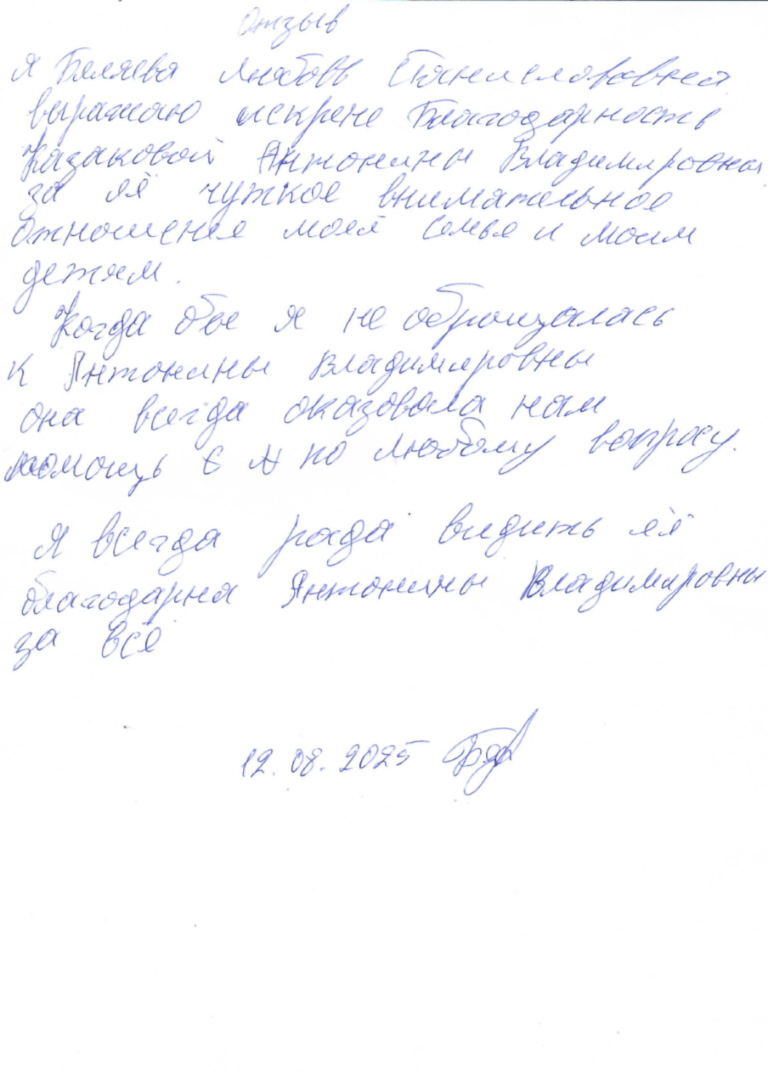 Отзыв
Я Беляева Любовь Станиславовна
выражаю искрене Благодарность
Казаковой Антонины Владимировны
за её чуткое внимательное
отношение моей семье и моим
детям.
Когда бы я не обращалась
к Антонины Владимировны
она всегда оказовала нам
помощь по любому вопросу.
Я всегда рада видить её
благодарна Антонины Владимировны
за всё
12.08.2025